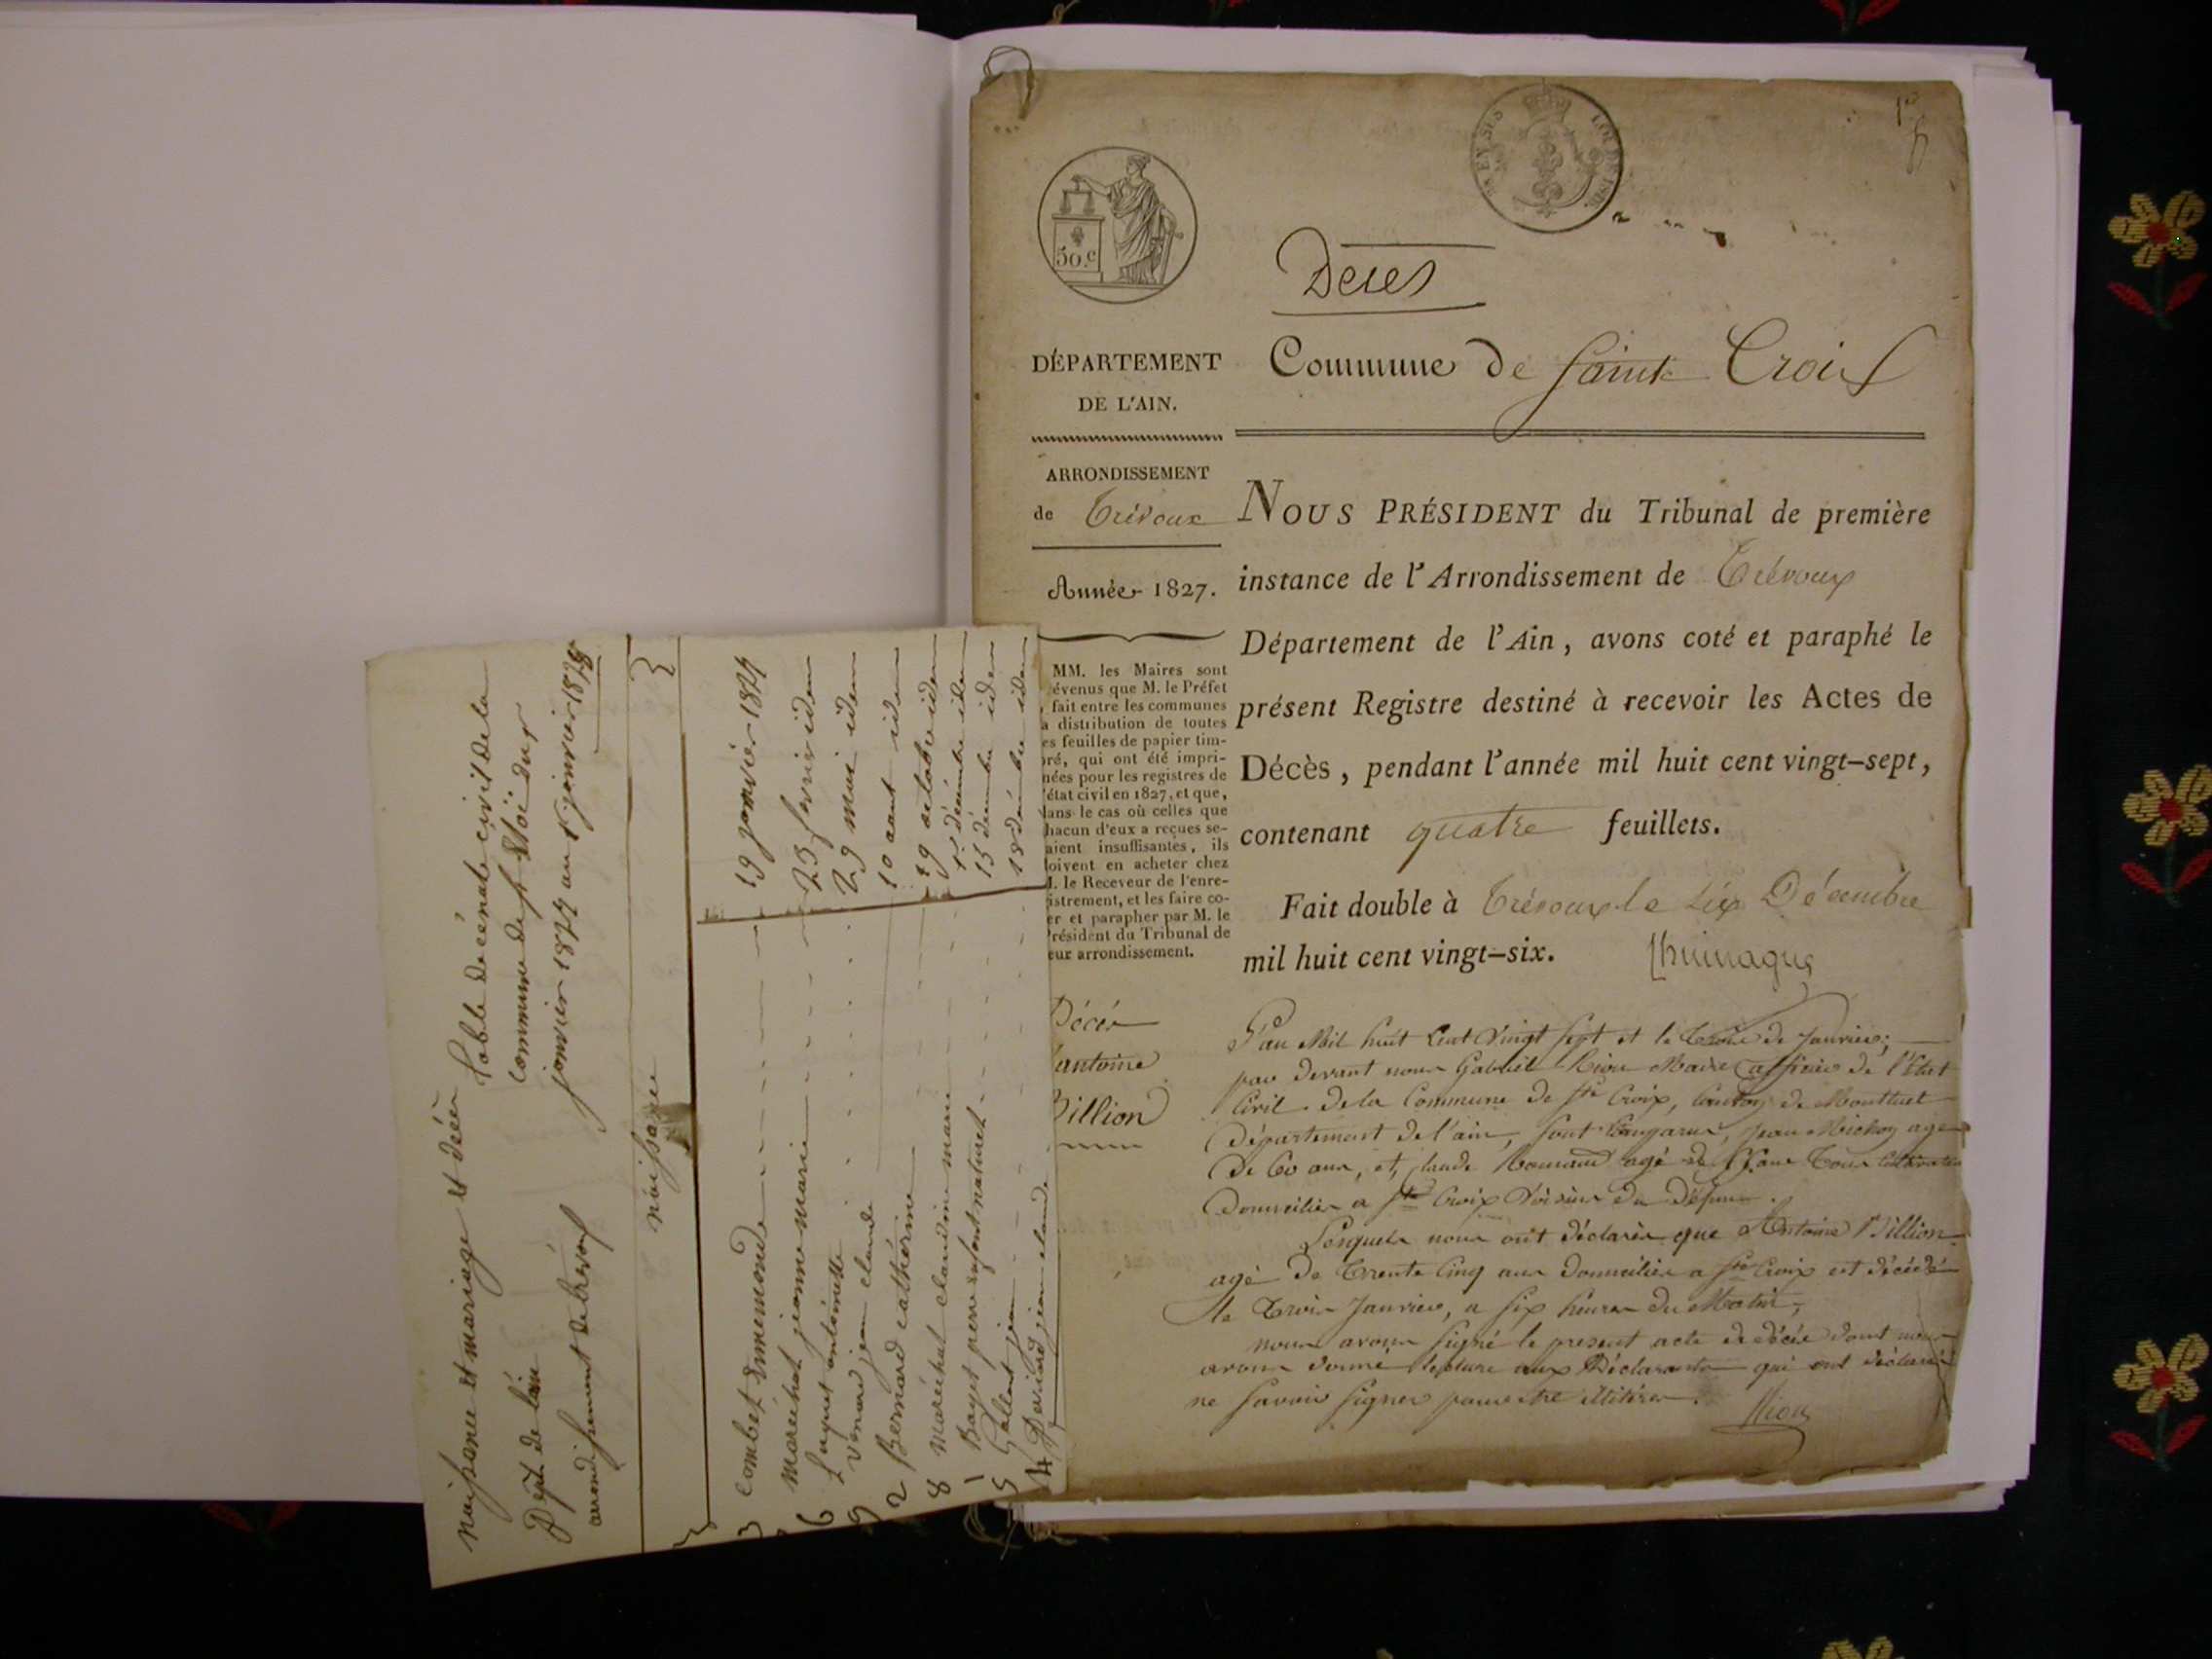 Décès
Commune de Sainte Croix
50.c
DÉPARTEMENT
DE L'AIN.
ARRONDISSEMENT
de Trévoux
Année 1827.
MM. les Maires sont
évenus que M. le Préfet
fait entre les communes
a distribution de toutes
es feuilles de papier tim-
bré, qui ont été impri-
mées pour les registres de
l'état civil en 1827, et que,
dans le cas où celles que
chacun d'eux a reçues se-
aient insuffisantes, ils
doivent en acheter chez
M. le Receveur de l'enre-
gistrement, et les faire co-
er et parapher par M. le
Président du Tribunal de
eur arrondissement.
NOUS PRÉSIDENT du Tribunal de première
instance de l'Arrondissement de Trévoux
Département de l'Ain, avons coté et paraphé le
présent Registre destiné à recevoir les Actes de
Décès, pendant l'année mil huit cent vingt-sept,
contenant quatre feuillets.
Fait double à Trévoux le dix Décembre
mil huit cent vingt-six.
Décés
antoine
Billion
L'an Mil huit Cent Vingt sept et le trois de Janvier;
par devant nous Gabriel Riou Maire officier de l'Etat
Civil de la Commune de Ste Croix, Canton de Montluel
Département de l'ain, sont Comparus, Jean Michon agé
De 60 ans, et, Claude Romand agé de ans Tous Cultivateurs
Domiciliés a Ste Croix Voisins du Défunt.
Lesquels nous ont déclarés que Antoine Billion
agé De Trente Cinq ans domicilier a Ste Croix est décédé
le Trois Janvier, a six heures du Matin;
nous avons signé le present acte de décés dont nous
avons donné lecture aux Déclarants qui ont déclaré
ne savoir signer pour etre illitérés.
Riou
naissance et mariage et décès
Dept. de l'ain
arrondissement de trevoux
table décénale civil de la
commune de St Eloi du 1r
janvier 18 au 1r janvier 18
naissance
3 combet
maréchal jeanne marie
6 fayet antoinette
9 venard jean claude
2 Bernard catherine
8 maréchal claudine marie
1 Bayet pierre enfant naturel
5 Gallent jean
4 Perriard jean claude
19 janvier 18
23 fevrier idem
29 mai idem
10 aout idem
19 octobre idem
1r décembre idem
15 décembre idem
18 décembre idem